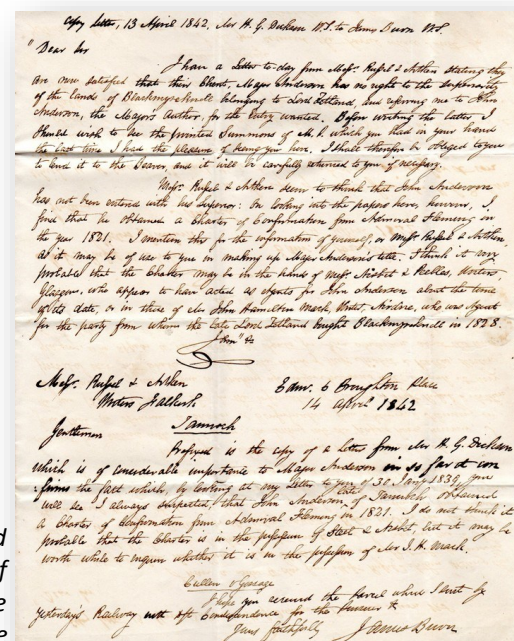 Copy letter, 13 April 1842, Mr H. G. Dickson W.S. to James Burn W.S.
"Dear Sir
I have a Letter to-day from Messrs. Russel & Aitken stating they
are now satisfied that their Client, Major Anderson has no right to the superiority
of the lands of belonging to Lord Zetland, and referring me to John
Anderson, the Major's Author, for the Entry wanted. Before writing the latter, I
should wish to see the printed Summons of which you had in your hand
the last time I had the pleasure of seeing you here. I shall therefore be obliged to you
to send it to the Bearer, and it will be carefully returned to you, if necessary.
Messrs. Russel & Aitken seem to think that John Anderson
has not been entered with his superior: On looking into the papers here, however, I
find that he obtained a Charter of Confirmation from Admiral Fleming in
the year 1821. I mention this for the information of yourself, or Messrs. Russel & Aitken,
as it may be of use to you in making up Major Anderson's title. I think it very
probable that the Charter may be in the hands of Messrs. Nisbet & Writers,
Glasgow, who appear to have acted as agents for John Anderson about the time
of its date, or in those of Mr John Hamilton Mack, Writer, Airdrie, who was Agent
for the party from whom the late Lord Zetland bought in 1828.
I am" &c
Messrs. Russel & Aitken
Writers Falkirk
Edinr. 6 Broughton Place
14 April 1842
Gentlemen
Prefixed is the copy of a letter from Mr H. G. Dickson
which is of considerable importance to Major Anderson in so far as it con
-firms the fact which, by looking at my letter to you of 30 Jany 1839, you
will see I always suspected, that John Anderson late of obtained
a Charter of Confirmation from Admiral Fleming in 1821. I do not think it
probable that the Charter is in the possession of & Nisbet, but it may be
worth while to enquire whether it is in the possession of Mr J. H. Mack.
Cullen v Grange
I hope you received the parcel which I sent by
Yesterday's Railway with Correspondence for the &
Yours faithfully
James Burn
d
of
e
e